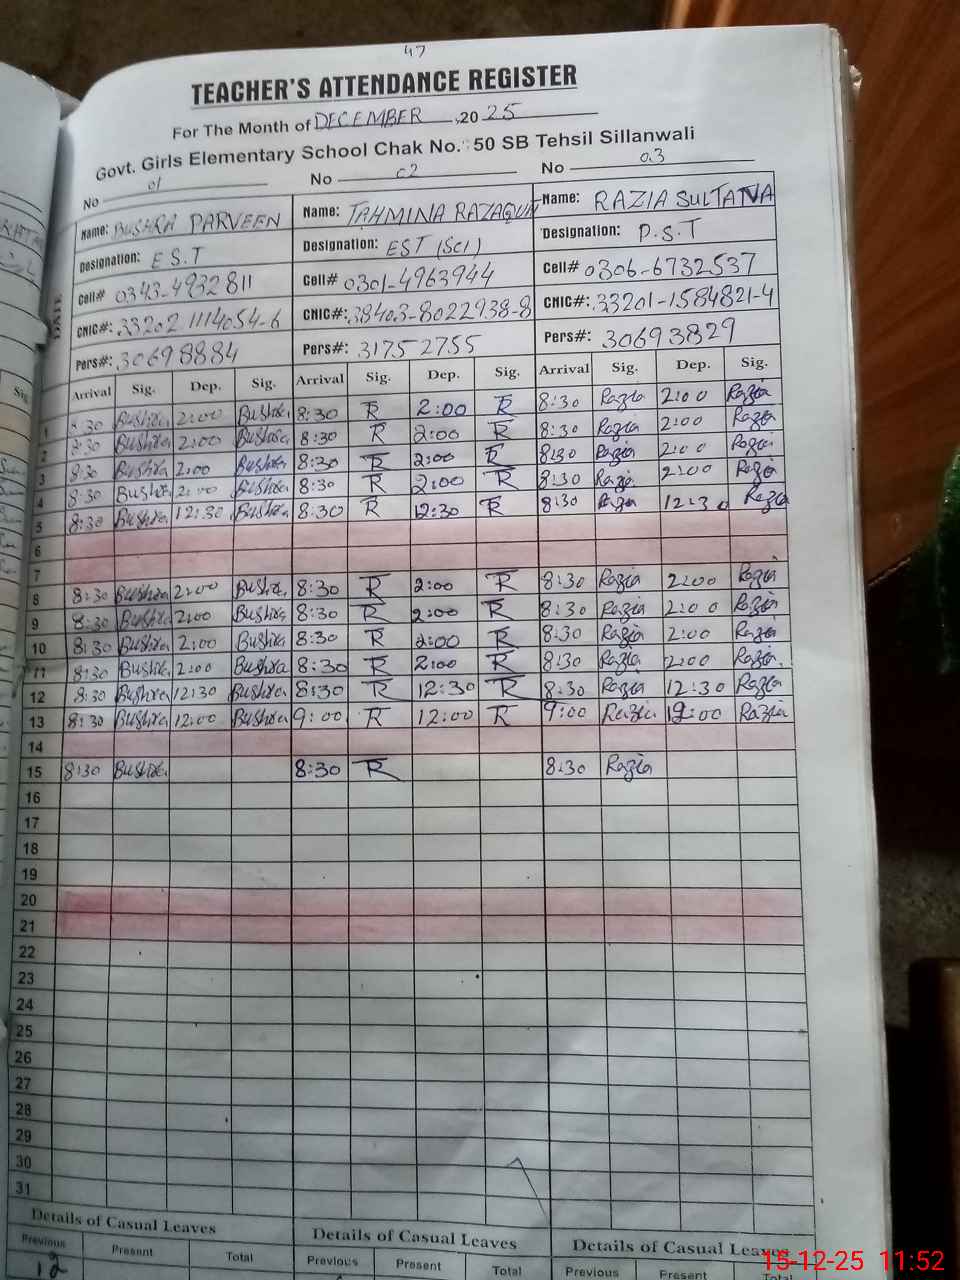 47
TEACHER'S ATTENDANCE REGISTER
For The Month of DECEMBER ,20 25
Govt. Girls Elementary School Chak No. 50 SB Tehsil Sillanwali
No 01 No 02 No 03
Name: BUSHRA PARVEEN Name: TAHMINA RAZAQUA Name: RAZIA SULTANA
Designation: E S.T Designation: EST (SCI) Designation: P.S.T
Cell# 0343-4932811 Cell# 0301-4963944 Cell# 0306-6732537
CNIC#: 33202 1114054-6 CNIC#: 38403-8022938-8 CNIC#: 33201-1584821-4
Pers#: 30698884 Pers#: 31752755 Pers#: 30693829
DATE Arrival Sig. Dep. Sig. Arrival Sig. Dep. Sig. Arrival Sig. Dep. Sig.
1 8:30 Bushra 2:00 Bushra 8:30 R 2:00 R 8:30 Razia 2:00 Razia
2 8:30 Bushra 2:00 Bushra 8:30 R 2:00 R 8:30 Razia 2:00 Razia
3 8:30 Bushra 2:00 Bushra 8:30 R 2:00 R 8:30 Razia 2:00 Razia
4 8:30 Bushra 2:00 Bushra 8:30 R 2:00 R 8:30 Razia 2:00 Razia
5 8:30 Bushra 12:30 Bushra 8:30 R 12:30 R 8:30 Razia 12:30 Razia
6
7
8 8:30 Bushra 2:00 Bushra 8:30 R 2:00 R 8:30 Razia 2:00 Razia
9 8:30 Bushra 2:00 Bushra 8:30 R 2:00 R 8:30 Razia 2:00 Razia
10 8:30 Bushra 2:00 Bushra 8:30 R 2:00 R 8:30 Razia 2:00 Razia
11 8:30 Bushra 2:00 Bushra 8:30 R 2:00 R 8:30 Razia 2:00 Razia
12 8:30 Bushra 12:30 Bushra 8:30 R 12:30 R 8:30 Razia 12:30 Razia
13 8:30 Bushra 12:00 Bushra 9:00 R 12:00 R 9:00 Razia 12:00 Razia
14
15 8:30 Bushra 8:30 R 8:30 Razia
16
17
18
19
20
21
22
23
24
25
26
27
28
29
30
31
Details of Casual Leaves Details of Casual Leaves Details of Casual Leaves
Previous Present Total Previous Present Total Previous Present Total
12
15-12-25 11:52